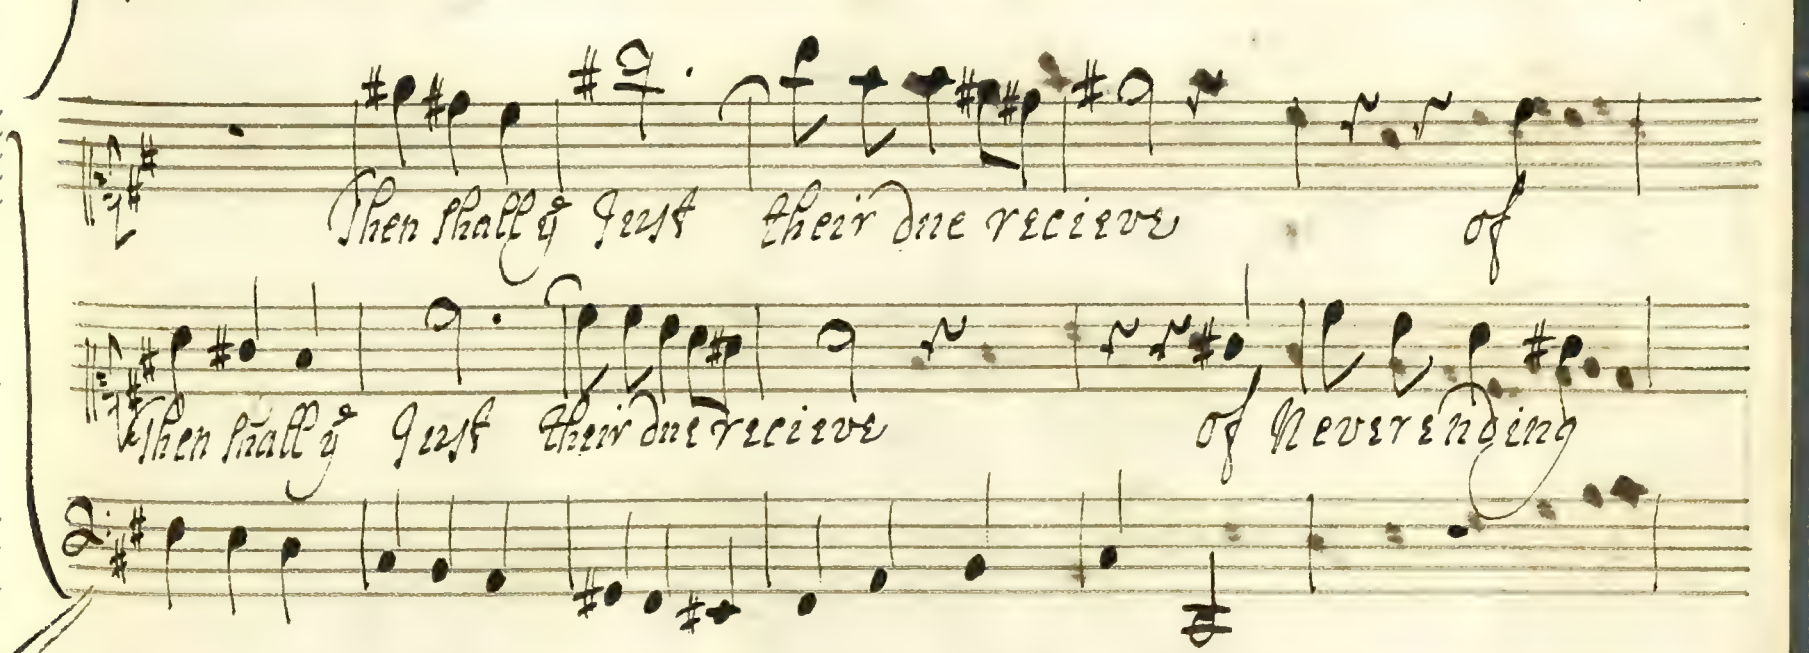 Then shall yͤ Just their due recieve of
Then shall yͤ Just their due recieve of Neverending